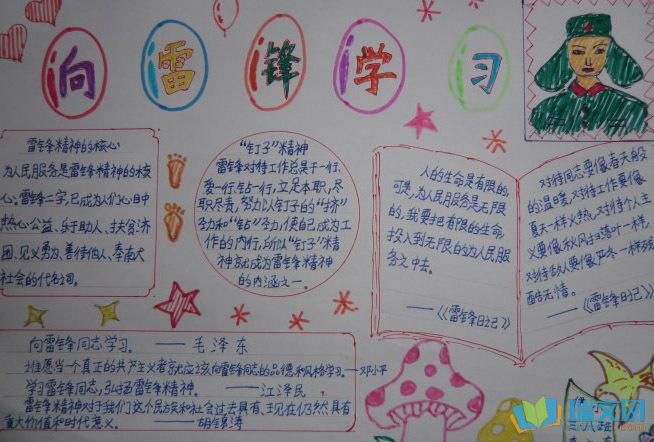 向雷锋学习
雷锋精神的核心
为人民服务是雷锋精神的核
心。雷锋二字,已成为人们心目中
热心公益、乐于助人、扶贫济
困、见义勇为、善待他人、奉献
社会的代名词。
“钉子”精神
雷锋对待工作总是干一行、
爱一行、钻一行,立足本职,尽
职尽责,努力以钉子的“挤”
劲和“钻”劲,使自己成为工
作的内行,所以“钉子”精
神就成为雷锋精神
的内涵之一。
人的生命是有限的,
可是,为人民服务是无限
的,我要把有限的生命,
投入到无限的为人民服
务之中去。
——《雷锋日记》
对待同志要像春天般
的温暖,对待工作要像
夏天一样火热,对待个人主
义要像秋风扫落叶一样,
对待敌人要像严冬一样残
酷无情。
——《雷锋日记》
向雷锋同志学习。——毛泽东
谁愿当一个真正的共产主义者就应该向雷锋同志的品德和风格学习。——邓小平
学习雷锋同志,弘扬雷锋精神。——江泽民
雷锋精神对于我们这个民族和社会过去具有、现在仍然具有
重大价值和时代意义。——胡锦涛
瑞文网